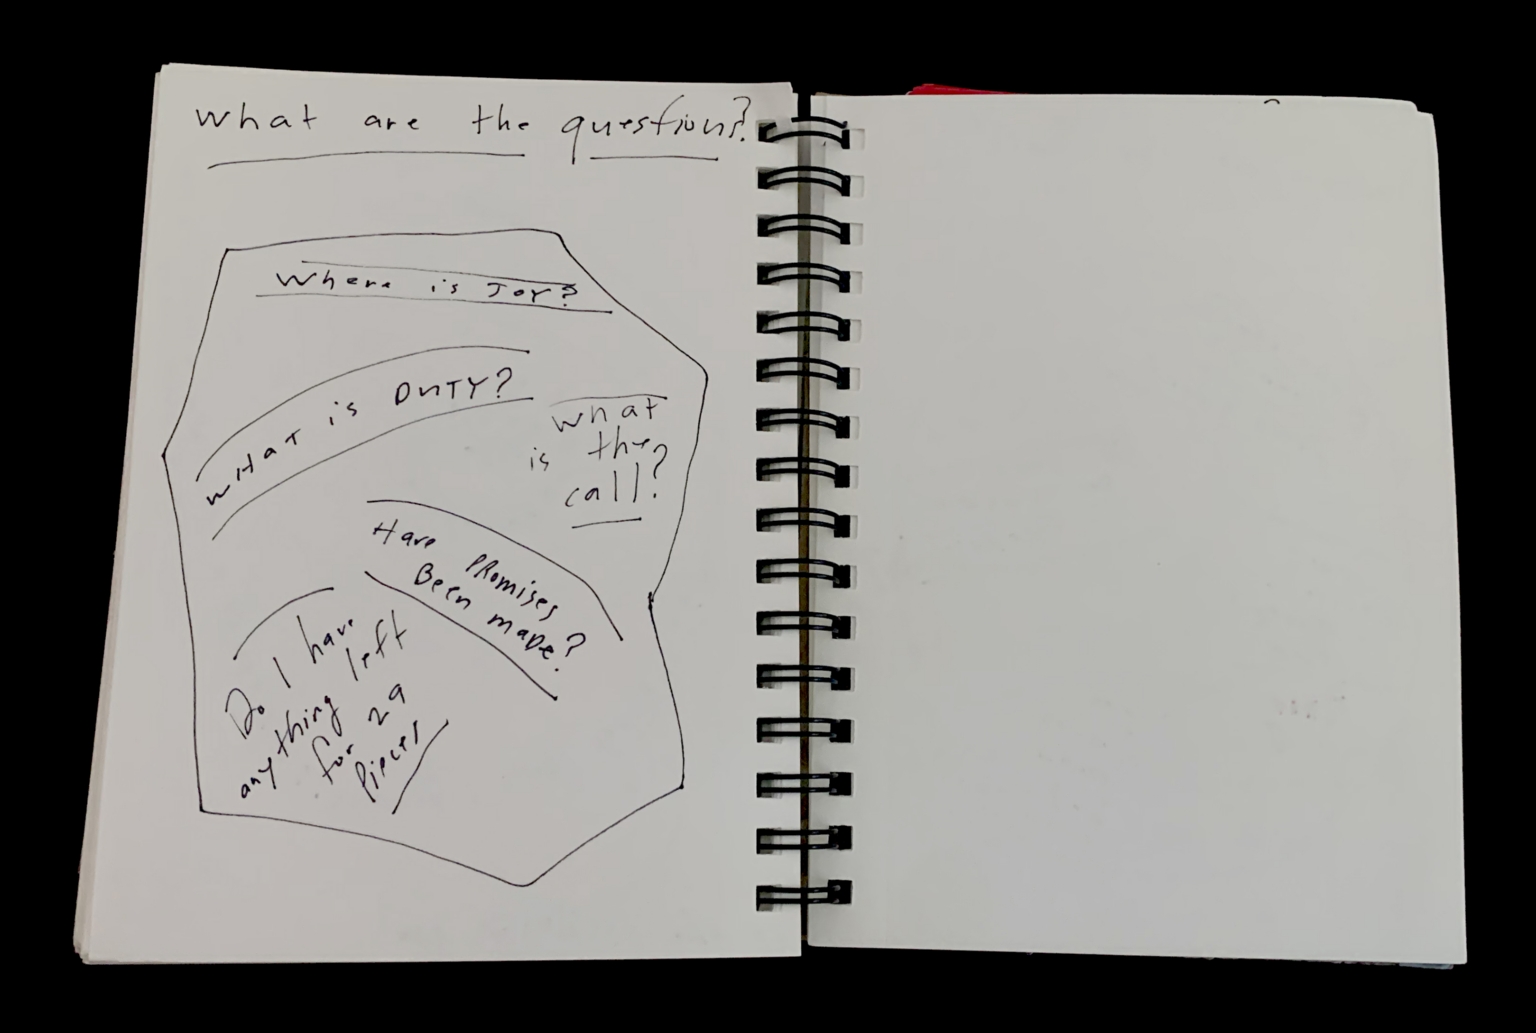 what are the questions?
Where is Joy?
WHAT is DUTY?
what
is the
call?
Have PRomises
Been maDe?
Do I have
anything left
for 29
Pieces